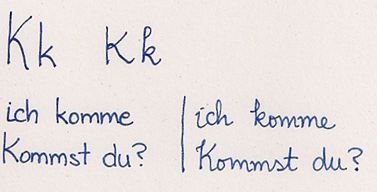 Kk Kk
ich komme
Kommst du?
ich komme
Kommst du?